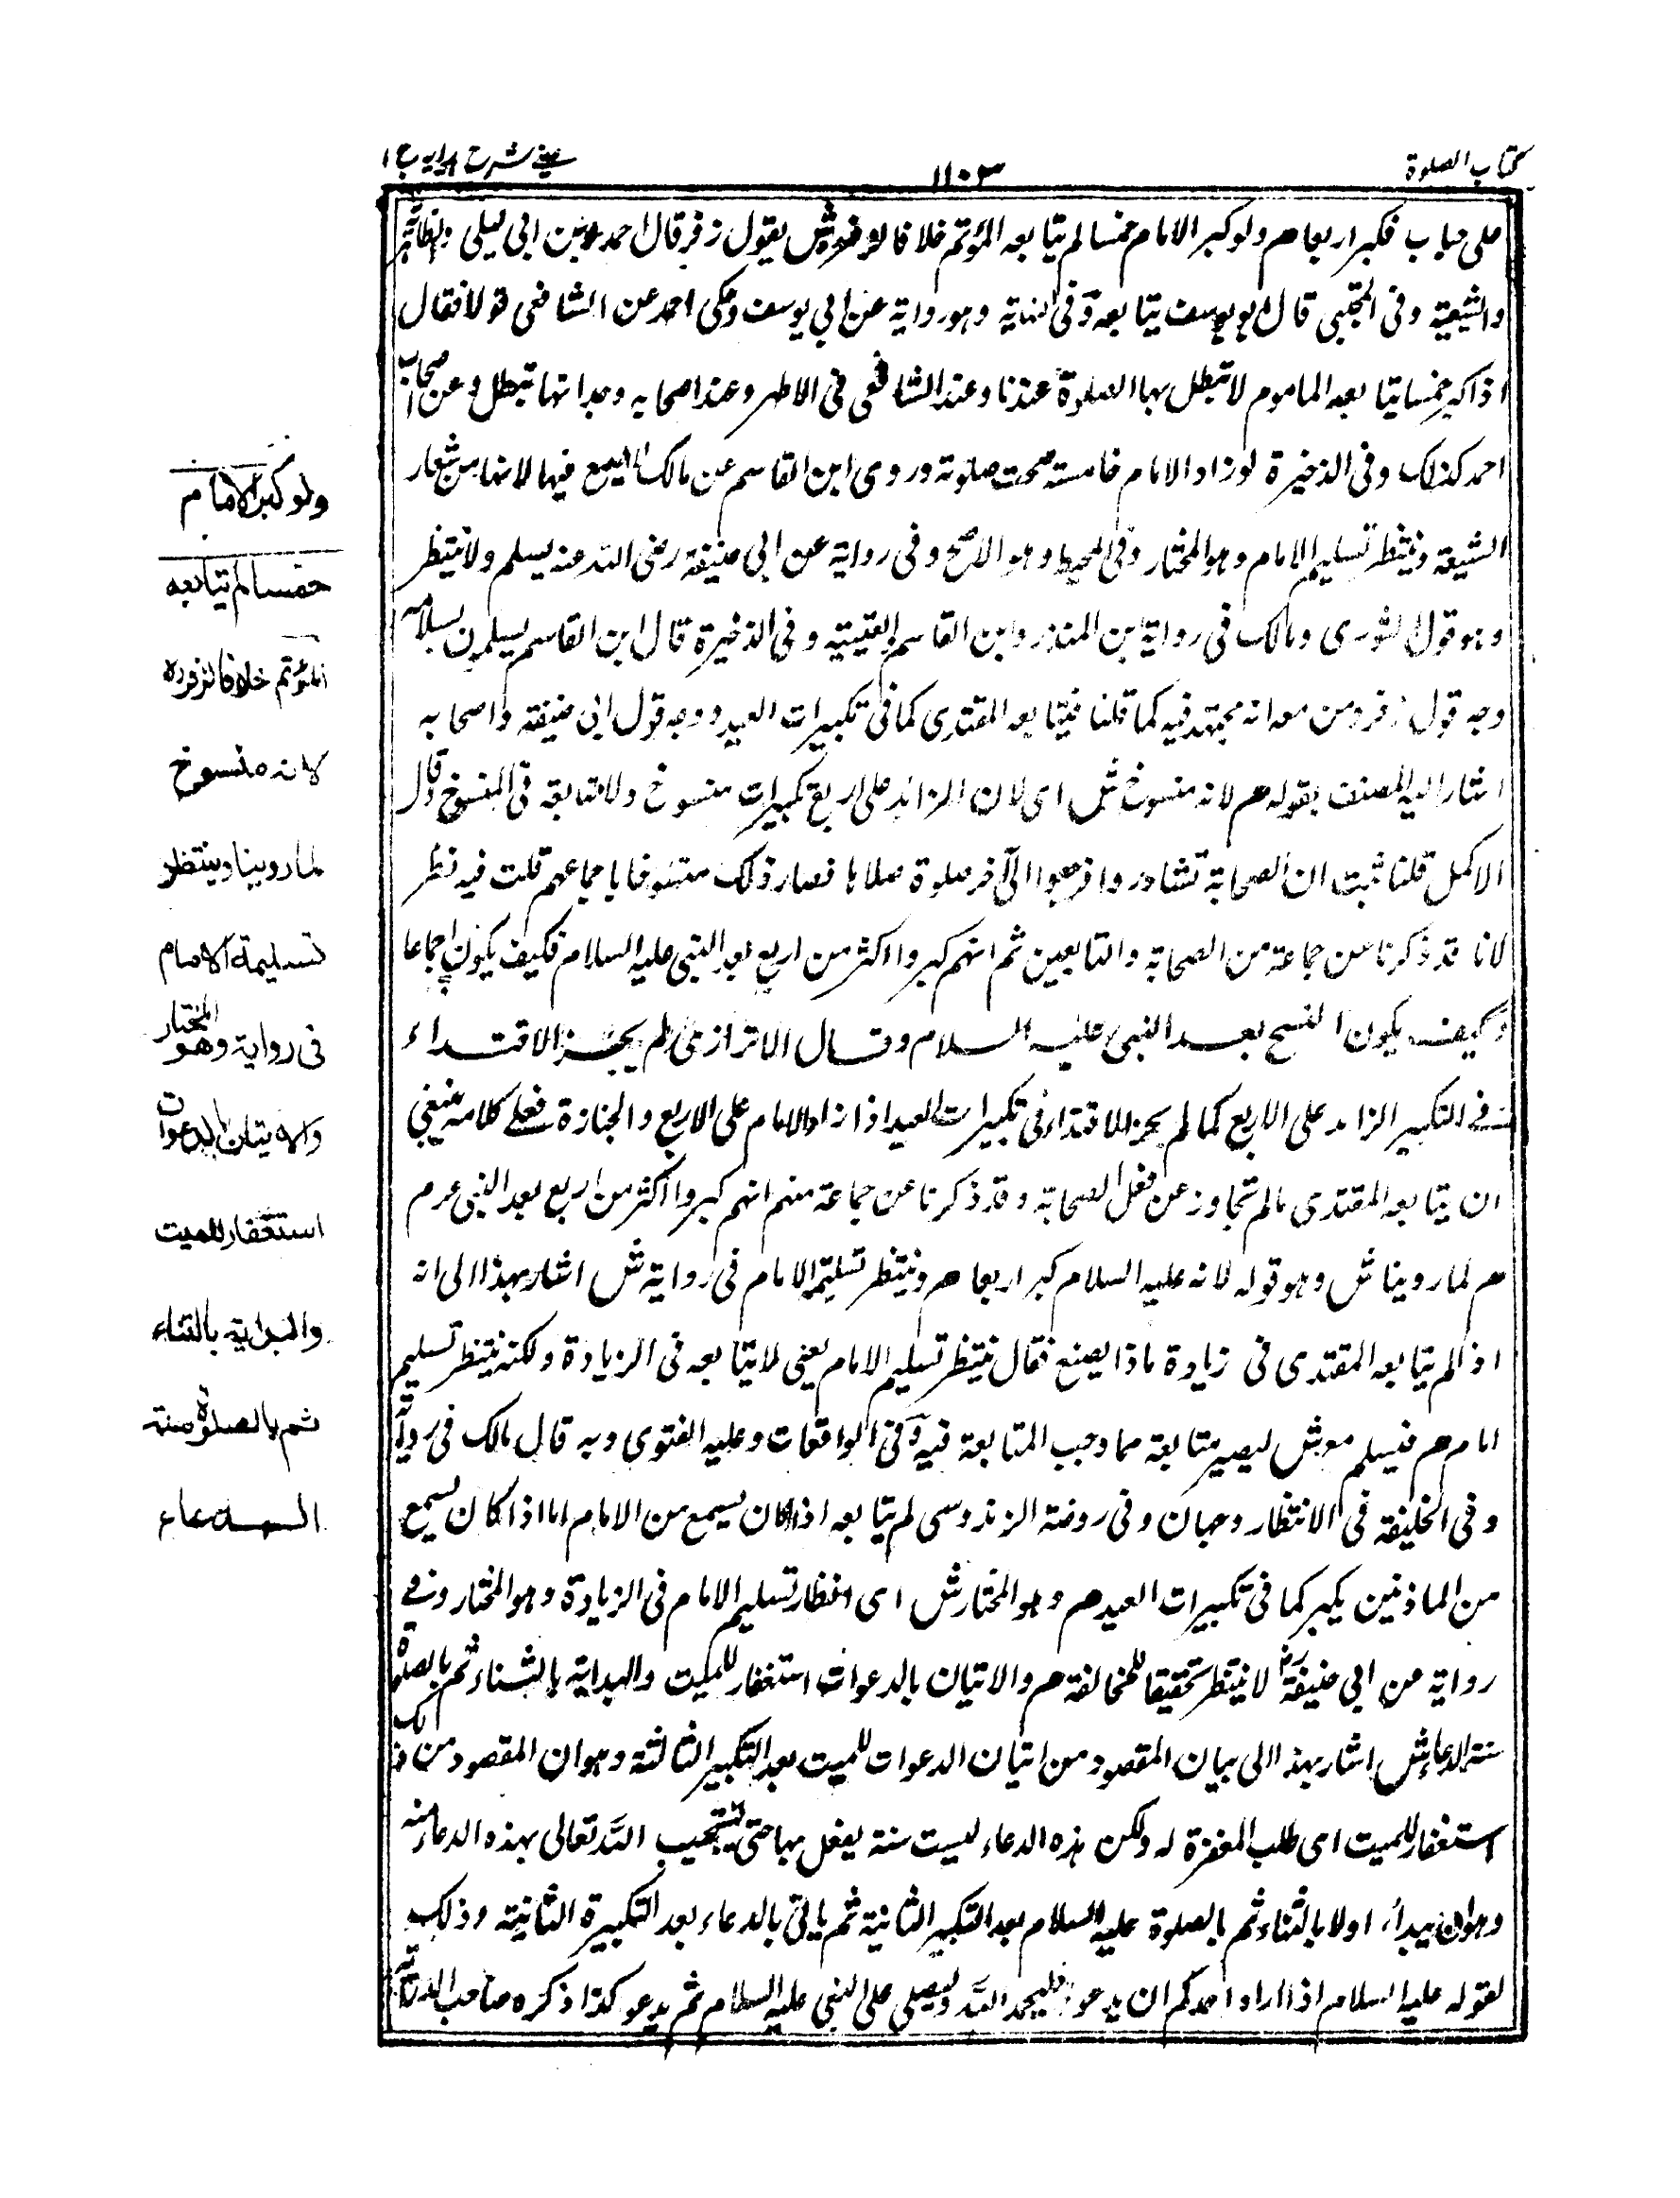 كتاب الصلوة
١١٠٣
عيني شرح هدايه ج ١
على جناب فكبر اربعا هم ولو كبر الامام خمسا لم يتابعه المؤتم خلافا لزفر ش بقول زفر قال احمد وابن ابي ليلى والظاهرية
والشيعية وفى المجتبى قال ابو يوسف يتابعه وفى النهاية وهو رواية عن ابي يوسف وحكى احمد عن الشافعى قولا فقال
اذا كبر خمسا يتابعه الماموم لا تبطل بها الصلوة عندنا وعند الشافعى فى الاظهر وعند اصحابه وجدانها تبطل وعن اصحاب
احمد كذلك وفى الذخيرة لو زاد الامام خامسة صحت صلوته وروى ابن القاسم عن مالك لا يتبع فيها لانها من شعار
الشيعة وينتظر تسليم الامام وهو المختار وفى المحيط وهو الاصح وفى رواية عن ابي حنيفة رضى الله عنه يسلم ولا ينتظر
وهو قول الثورى ومالك فى رواية ابن المنذر وابن القاسم العتبية وفى الذخيرة قال ابن القاسم يسلمون بسلامه
وجه قول زفر ومن معه انه مجتهد فيه كما قلنا فيتابعه المقتدى كما فى تكبيرات العيد ووجه قول ابى حنيفة واصحابه
اشار اليه المصنف بقوله هم لانه منسوخ ش اى لان الزائد على اربع تكبيرات منسوخ ولا متابعة فى المنسوخ وقال
الاكمل قلنا ثبت ان الصحابة تشاوروا فرجعوا الى آخر صلوة صلاها فصار ذلك منسوخا باجماعهم قلت فيه نظر
لانا قد ذكرنا عن جماعة من الصحابة والتابعين ثم انهم كبروا اكثر من اربع بعد النبى عليه السلام فكيف يكون اجماعا
وكيف يكون النسخ بعد النبى عليه السلام وقال الاترازى لم يجز الاقتداء
فى التكبير الزائد على الاربع كما لم يجز الاقتداء فى تكبيرات العيد اذا زاد الامام على الاربع والجنازة فعلى كلامه ينبغى
ان يتابعه المقتدى ما لم تجاوز عن فعل الصحابة وقد ذكرنا عن جماعة منهم انهم كبروا اكثر من اربع بعد النبى عرم
هم لما روينا ش وهو قوله لانه عليه السلام كبر اربعا هم وينتظر تسليم الامام فى رواية ش اشار بهذا الى انه
اذا لم يتابعه المقتدى فى زيادة ماذا يصنع فقال ينتظر تسليم الامام يعنى لا يتابعه فى الزيادة ولكنه ينتظر تسليم
امام هم فيسلم معه ش ليصير متابعة مما وجب المتابعة فيه وفى الواقعات وعليه الفتوى وبه قال مالك فى رواية
وفى الخليفة فى الانتظار وجهان وفى روضة الزندوسى لم يتابعه اذا كان يسمع من الامام اما اذا كان يسمع
من الماذنين يكبر كما فى تكبيرات العيد هم وهو المختار ش اى انتظار تسليم الامام فى الزيادة وهو المختار وفى
رواية عن ابي حنيفة رح لا ينتظر تحقيقا للمخالفة هم والاتيان بالدعوات استغفار للميت والبداية بالثناء ثم بالصلوة
سنة الدعاء ش اشار بهذا الى بيان المقصود من اتيان الدعوات للميت بعد التكبير الثالثة وهو ان المقصود من ذلك
استغفار للميت اى طلب المغفرة له ولكن هذه الدعاء ليست سنة يفعل بها حتى يستجيب الله تعالى بهذه الدعاء منه
وهو ان يبدأ اولا بالثناء ثم بالصلوة عليه السلام بعد التكبير الثانية ثم ياتى بالدعاء بعد التكبيرة الثانية وذلك
لقوله عليه السلام اذا اراد احدكم ان يدعو فليحمد الله وليصلى على النبى عليه السلام ثم يدعو كذا ذكره صاحب الدراية
ولو كبر الامام
خمسا لم يتابعه
المؤتم خلافا لزفر ره
لانه منسوخ
لما روينا وينتظر
تسليمة الامام
فى رواية وهو المختار
والاتيان بالدعوات
استغفار للميت
والبداية بالثناء
ثم بالصلوة سنة
الدعاء